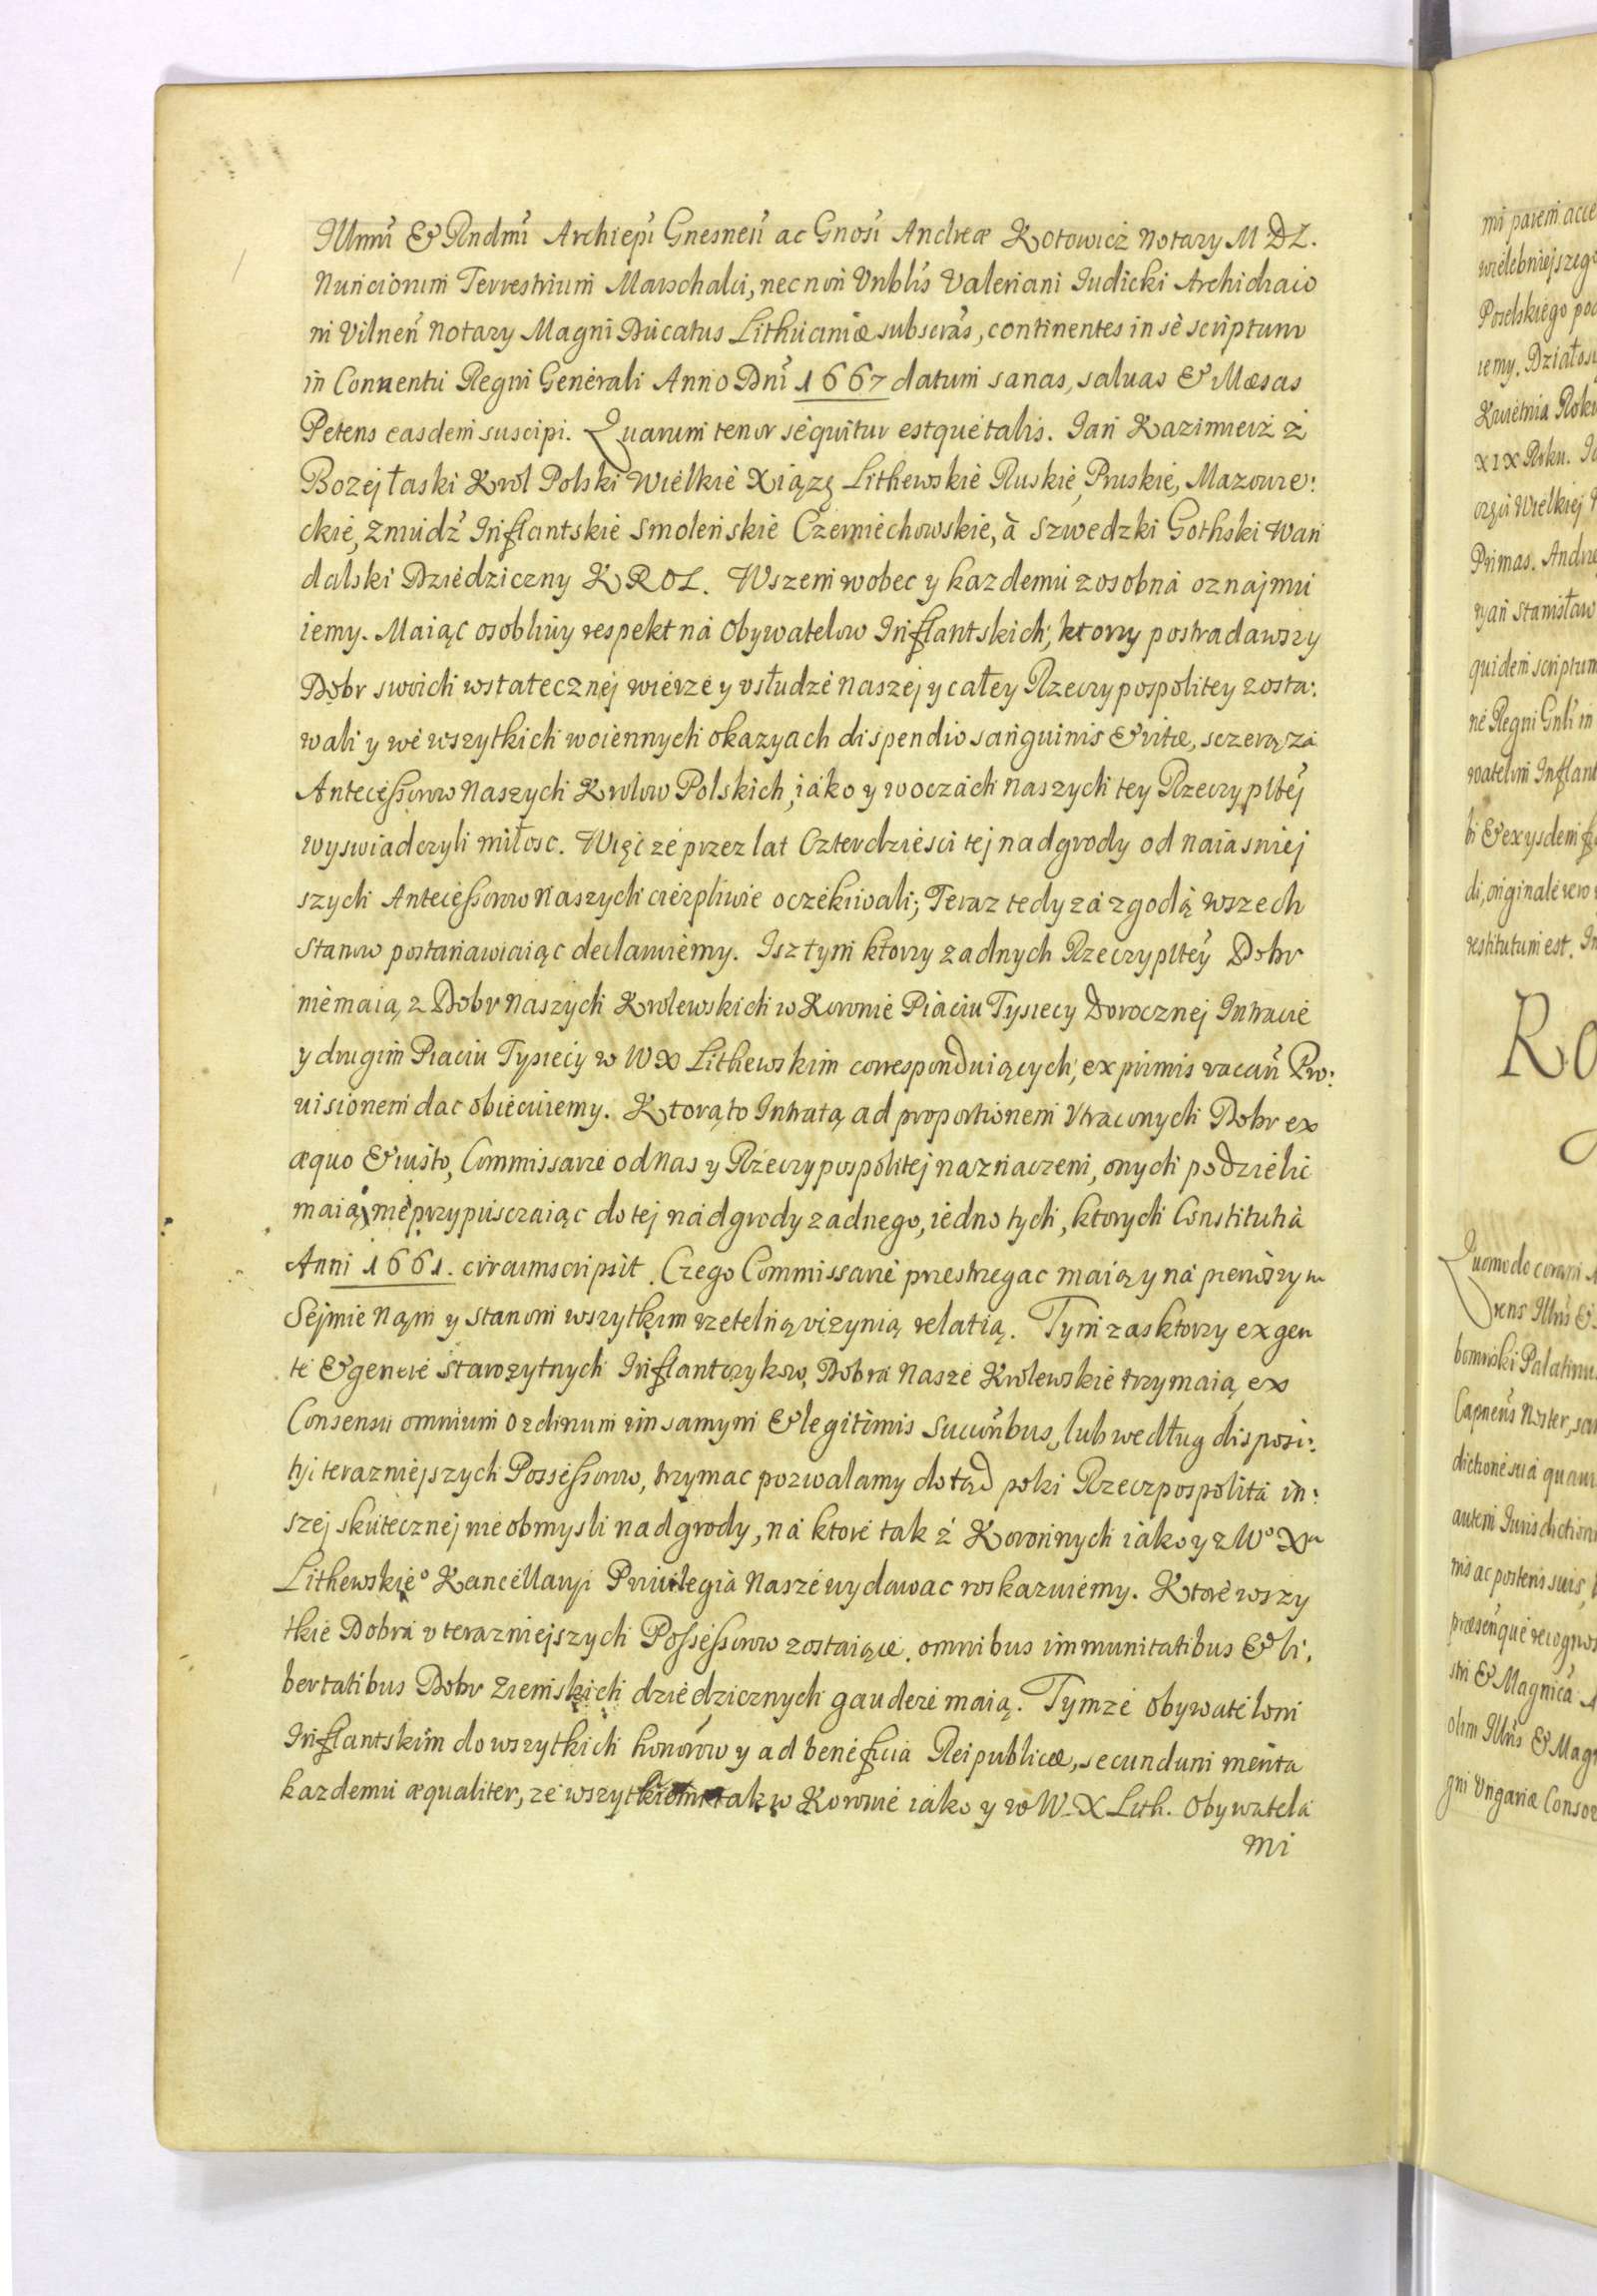 Illnũ & Rndmĩ Archiepĩ Gnesneñ ac Gnosĩ Andreæ Kotowicz Notary M DL.
Nunciorum Terrestrium Marschalci, necnon Vnblis Valeriani Iudicki Archidiaco
ni Vilneñ Notary Magni Ducatus Lithuaniæ subscras, continentes in se scriptum
in Conuentu Regni Generali Anno Dnĩ 1667 datum sanas, saluas & illæsas
Petens easdem suscipi. Quarum tenor sequitur estque talis. Ian Kazimierz z
Bozej łaski Krol Polski Wielkie Xiązę Lithewskie Ruskie, Pruskie, Mazowie:
ckie, Zmudz Inflantskie Smolenskie Czerniechowskie, a Szwedzki Gothski Wan
dalski Dziedziczny KROL. Wszem wobec y kazdemu zosobna oznajmu
iemy. Maiąc osobliwy respekt na Obywatelow Inflantskich, ktorzy postradawszy
Dobr swoich wstatecznej wierze y vsłudze naszej y całey Rzeczypospolitey zosta:
wali y we wszytkich woiennych okazyach dispendio sanguinis & vitæ, sczerą za
Antecessorow Naszych Krolow Polskich, iako y woczach naszych tey Rzeczypltej
wyswiadczyli miłosc. Więc ze przez lat Czterdziesci tej nadgrody od naiasniej
szych Antecessorow Naszych cierpliwie oczekiwali; Teraz tedy za zgodą wszech
Stanow postanawiaiąc declaruiemy. Isz tym ktorzy zadnych Rzeczypltey Dobr
niemaią, z Dobr Naszych Krolewskich w Koronie Piąciu Tysiecy Dorocznej Intracie
y drugim Piaciu Tysiecy w WX Lithewskim correspondviących, ex primis vacan̄ Pro:
uisionem dac obiecuiemy. Ktorą to Intratą ad proportionem Vtraconych Dobr ex
æquo & iusto, Commissarze od Nas y Rzeczypospolitej naznaczeni, onych podzielic
maią, nieprzypusczaiąc do tej nadgrody zadnego, iedno tych, ktorych Constitutia
Anni 1661. circumscripsit. Czego Commissarze przestrzegac maią y na pierwszym
Sejmie Nąm y Stanom wszytkim rzetelną vczynią relatią. Tym zas ktorzy ex gen
te & genere Starozytnych Inflantczykow, Dobra Nasze Krolewskie trzymaią, ex
Consensu omnium Ordinum im samym & legitimis Succrĩbus, lub według disposi:
tyi terazniejszych Possessorow, trzymac pozwalamy dotąd poki Rzeczpospolita in:
szej skutecznej nie obmysli nadgrody, na ktore tak z Koronnych iako y z Wº Xª
Lithewskieº Kancellaryi Priuilegia Nasze wydawac roskazuiemy. Ktore wszy
tkie Dobra v terazniejszych Possessorow zostaiące. omnibus immunitatibus & li.
bertatibus Dobr Ziemskich dziedzicznych gaudere maią. Tymze Obywatelom
Inflantskim do wszytkich honorow y ad beneficia Reipublicæ, secundum merita
kazdemu æqualiter, ze wszytkiemi tak w Koronie iako y w W. X Lith. Obywatela
mi
mi parem acce
wielebniejszego
Poselskiego pod
iemy. Działosi
Kwietnia Roku
XIX Roku.
Primas. Andrze
ryan Stanisław
quidem scriptum
ne Regni Gnli in
watelom Inflant
di, originale vero
restitutum est. In
Ro
Quomodo coram
rens Illris &
bomirski Palatinus
Capneus Noster, san
dictione sua quam
autem Iurisdiction
nis ac posteris suis,
præsenque recognos
stri & Magnica
olim Illris & Magn
gni Vngariæ Consor